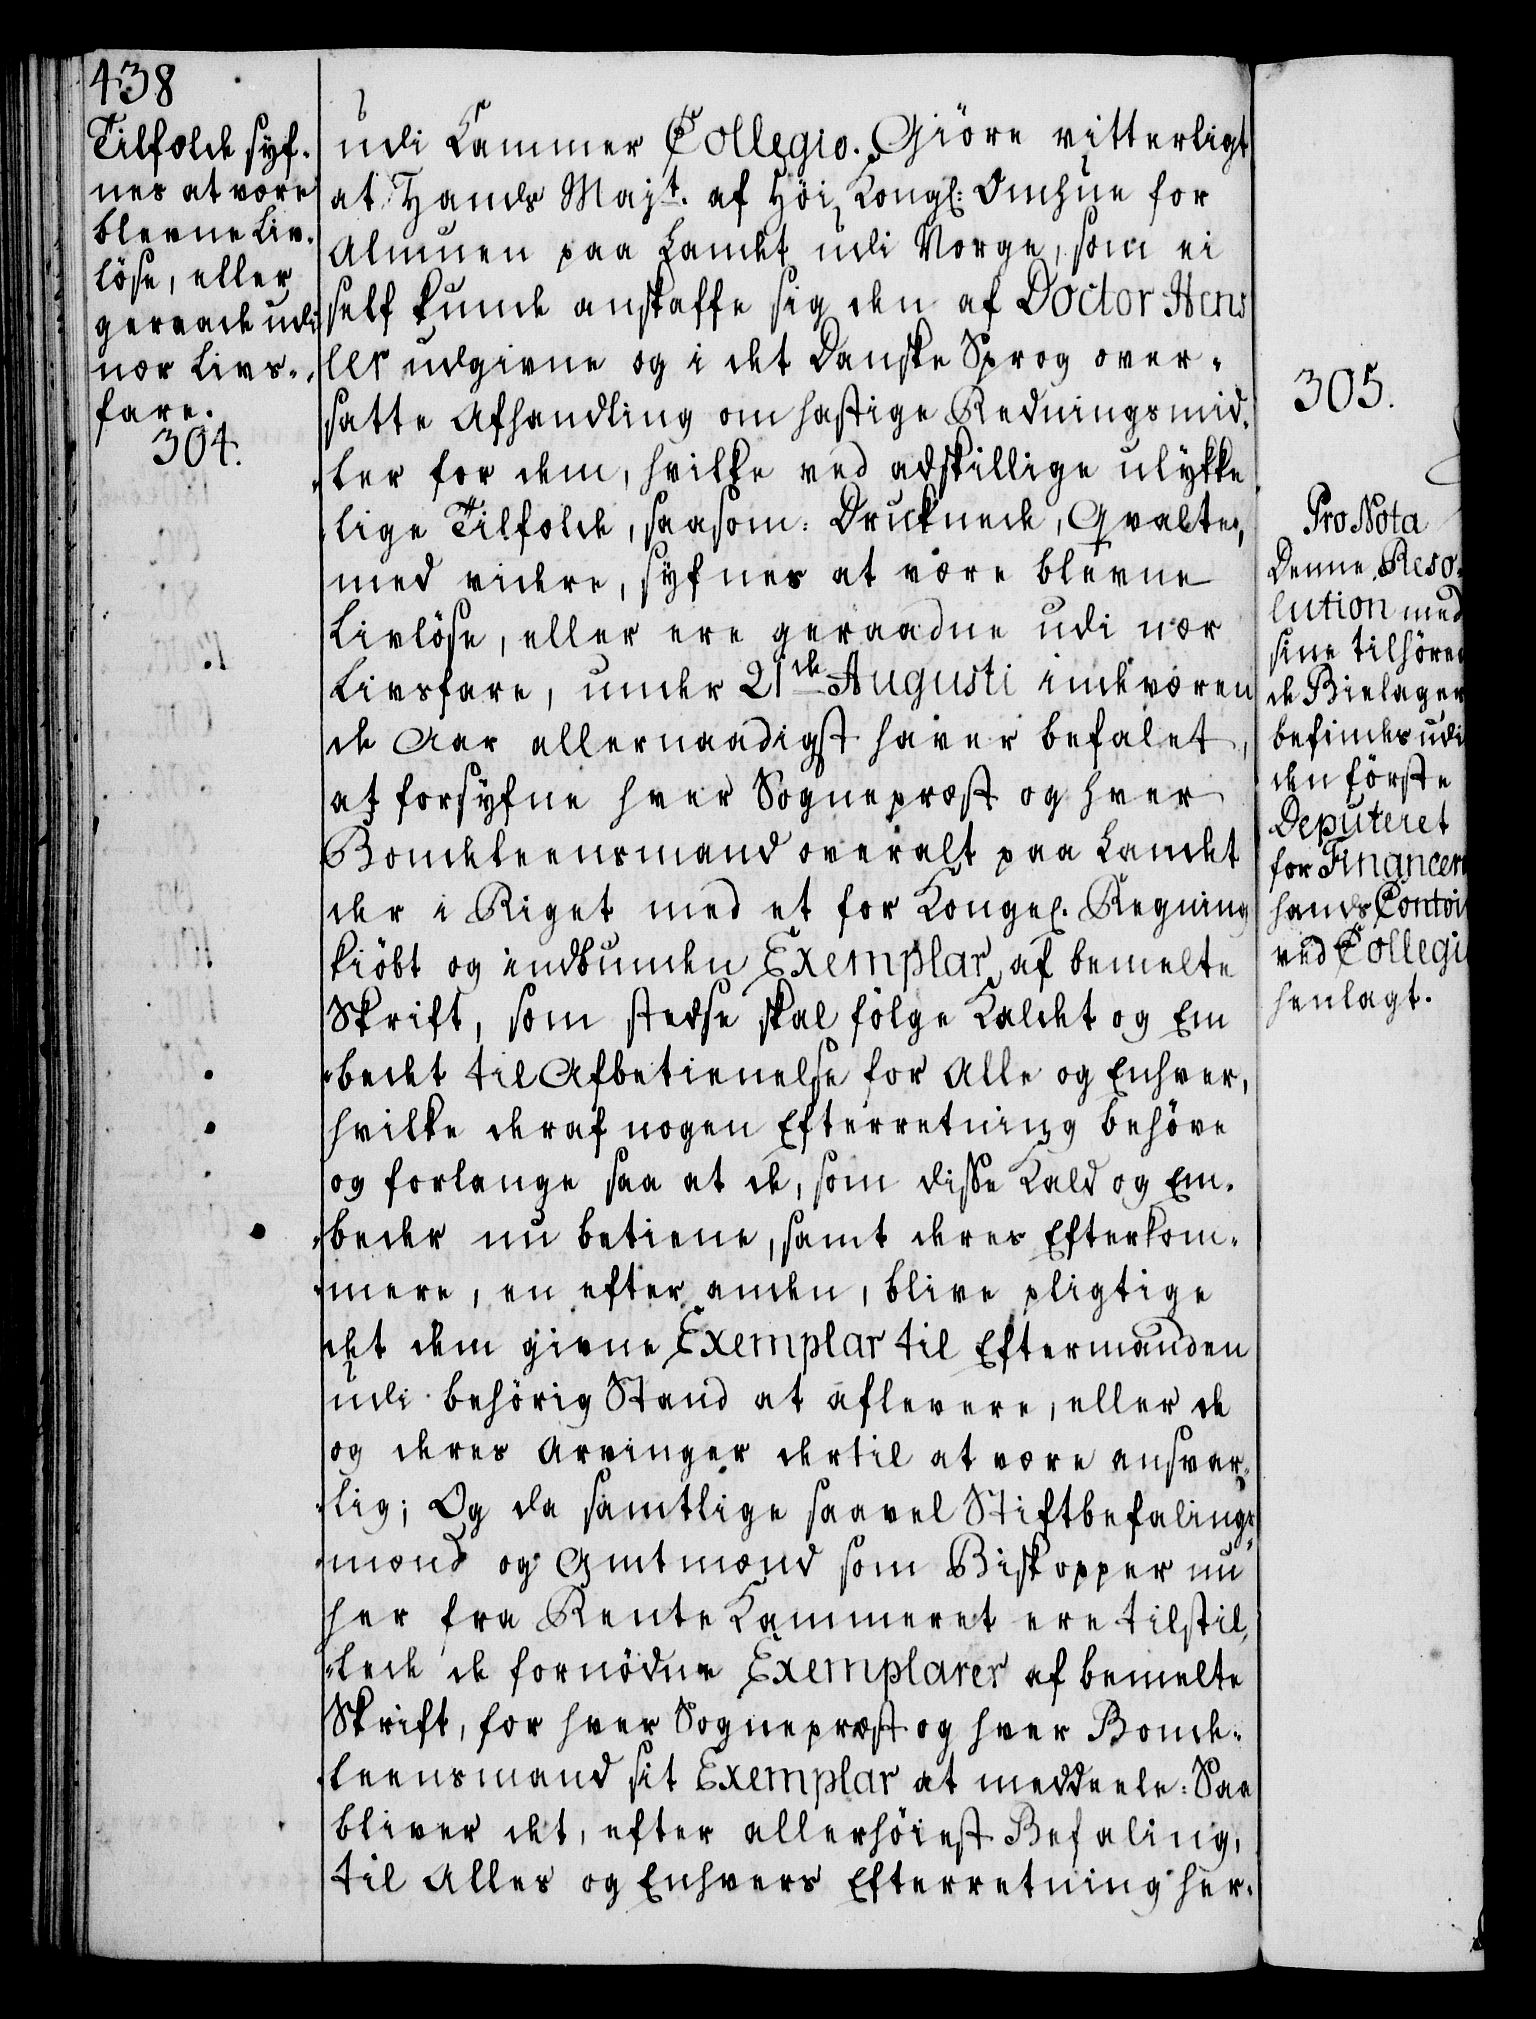 438
Tilfælde syf¬
nes at være
blevne Liv¬
løse, eller
geraade udi
nær Livs¬
fare.
304.
udi Kammer Collegio. Giöre vitterligt
at Hands Majt. af Höi Kongl: Omhue for
Almuen paa Landet udi Norge, som ei
self kunde anskaffe sig den af Doctor Hens
ler udgivne og i det Danske Sprog over¬
satte Afhandling om hastige Redningsmid¬
ler for dem, hvilke ved adskillige ulykke
lige Tilfælde, saasom: Druknede, Qvalte,
med videre, syfnes at være blevne
Livlöse, eller ere geraadne udi nær
Livsfare, under 21de Augusti indeværen
de Aar allernaadigst haver befalet,
at forsyfne hver Sognepræst og hver
Bondeleensmand overalt paa Landet
der i Riget med et for Kongel. Regning
kiöbt og indbunden Exemplar af bemelte
Skrift, som stedse skal fölge Kaldet og Em
bedet til Afbetienelse for Alle og Enhver,
hvilke deraf nogen Efterretning behöve
og forlange saa at de, som disse Kald og Em¬
beder nu betiene, samt deres Efterkom¬
mere, en efter anden, blive pligtige
det dem givne Exemplar til Eftermanden
udi behörig Stand at aflevere, eller de
og deres Arvinger dertil at være ansvar¬
lig; Og da samtlige saavel Stiftbefalings
mænd og Amtmænd som Biskopper nu
her fra Rente Kammeret ere tilstil¬
lede de fornödne Exemplarer af bemelte
Skrift, for hver Sognepræst og hver Bonde¬
leensmand sit Exemplar at meddeele: Saa
bliver det, efter allerhöiest Befaling,
til Alles og Enhvers Efterretning her¬
305.
Pro Nota
Denne Reso¬
lution med
sine tilhören
de Bielager
befindes udi
den förste
Deputeret
for Financern
hands Contoi
ved Collegi
henlagt.